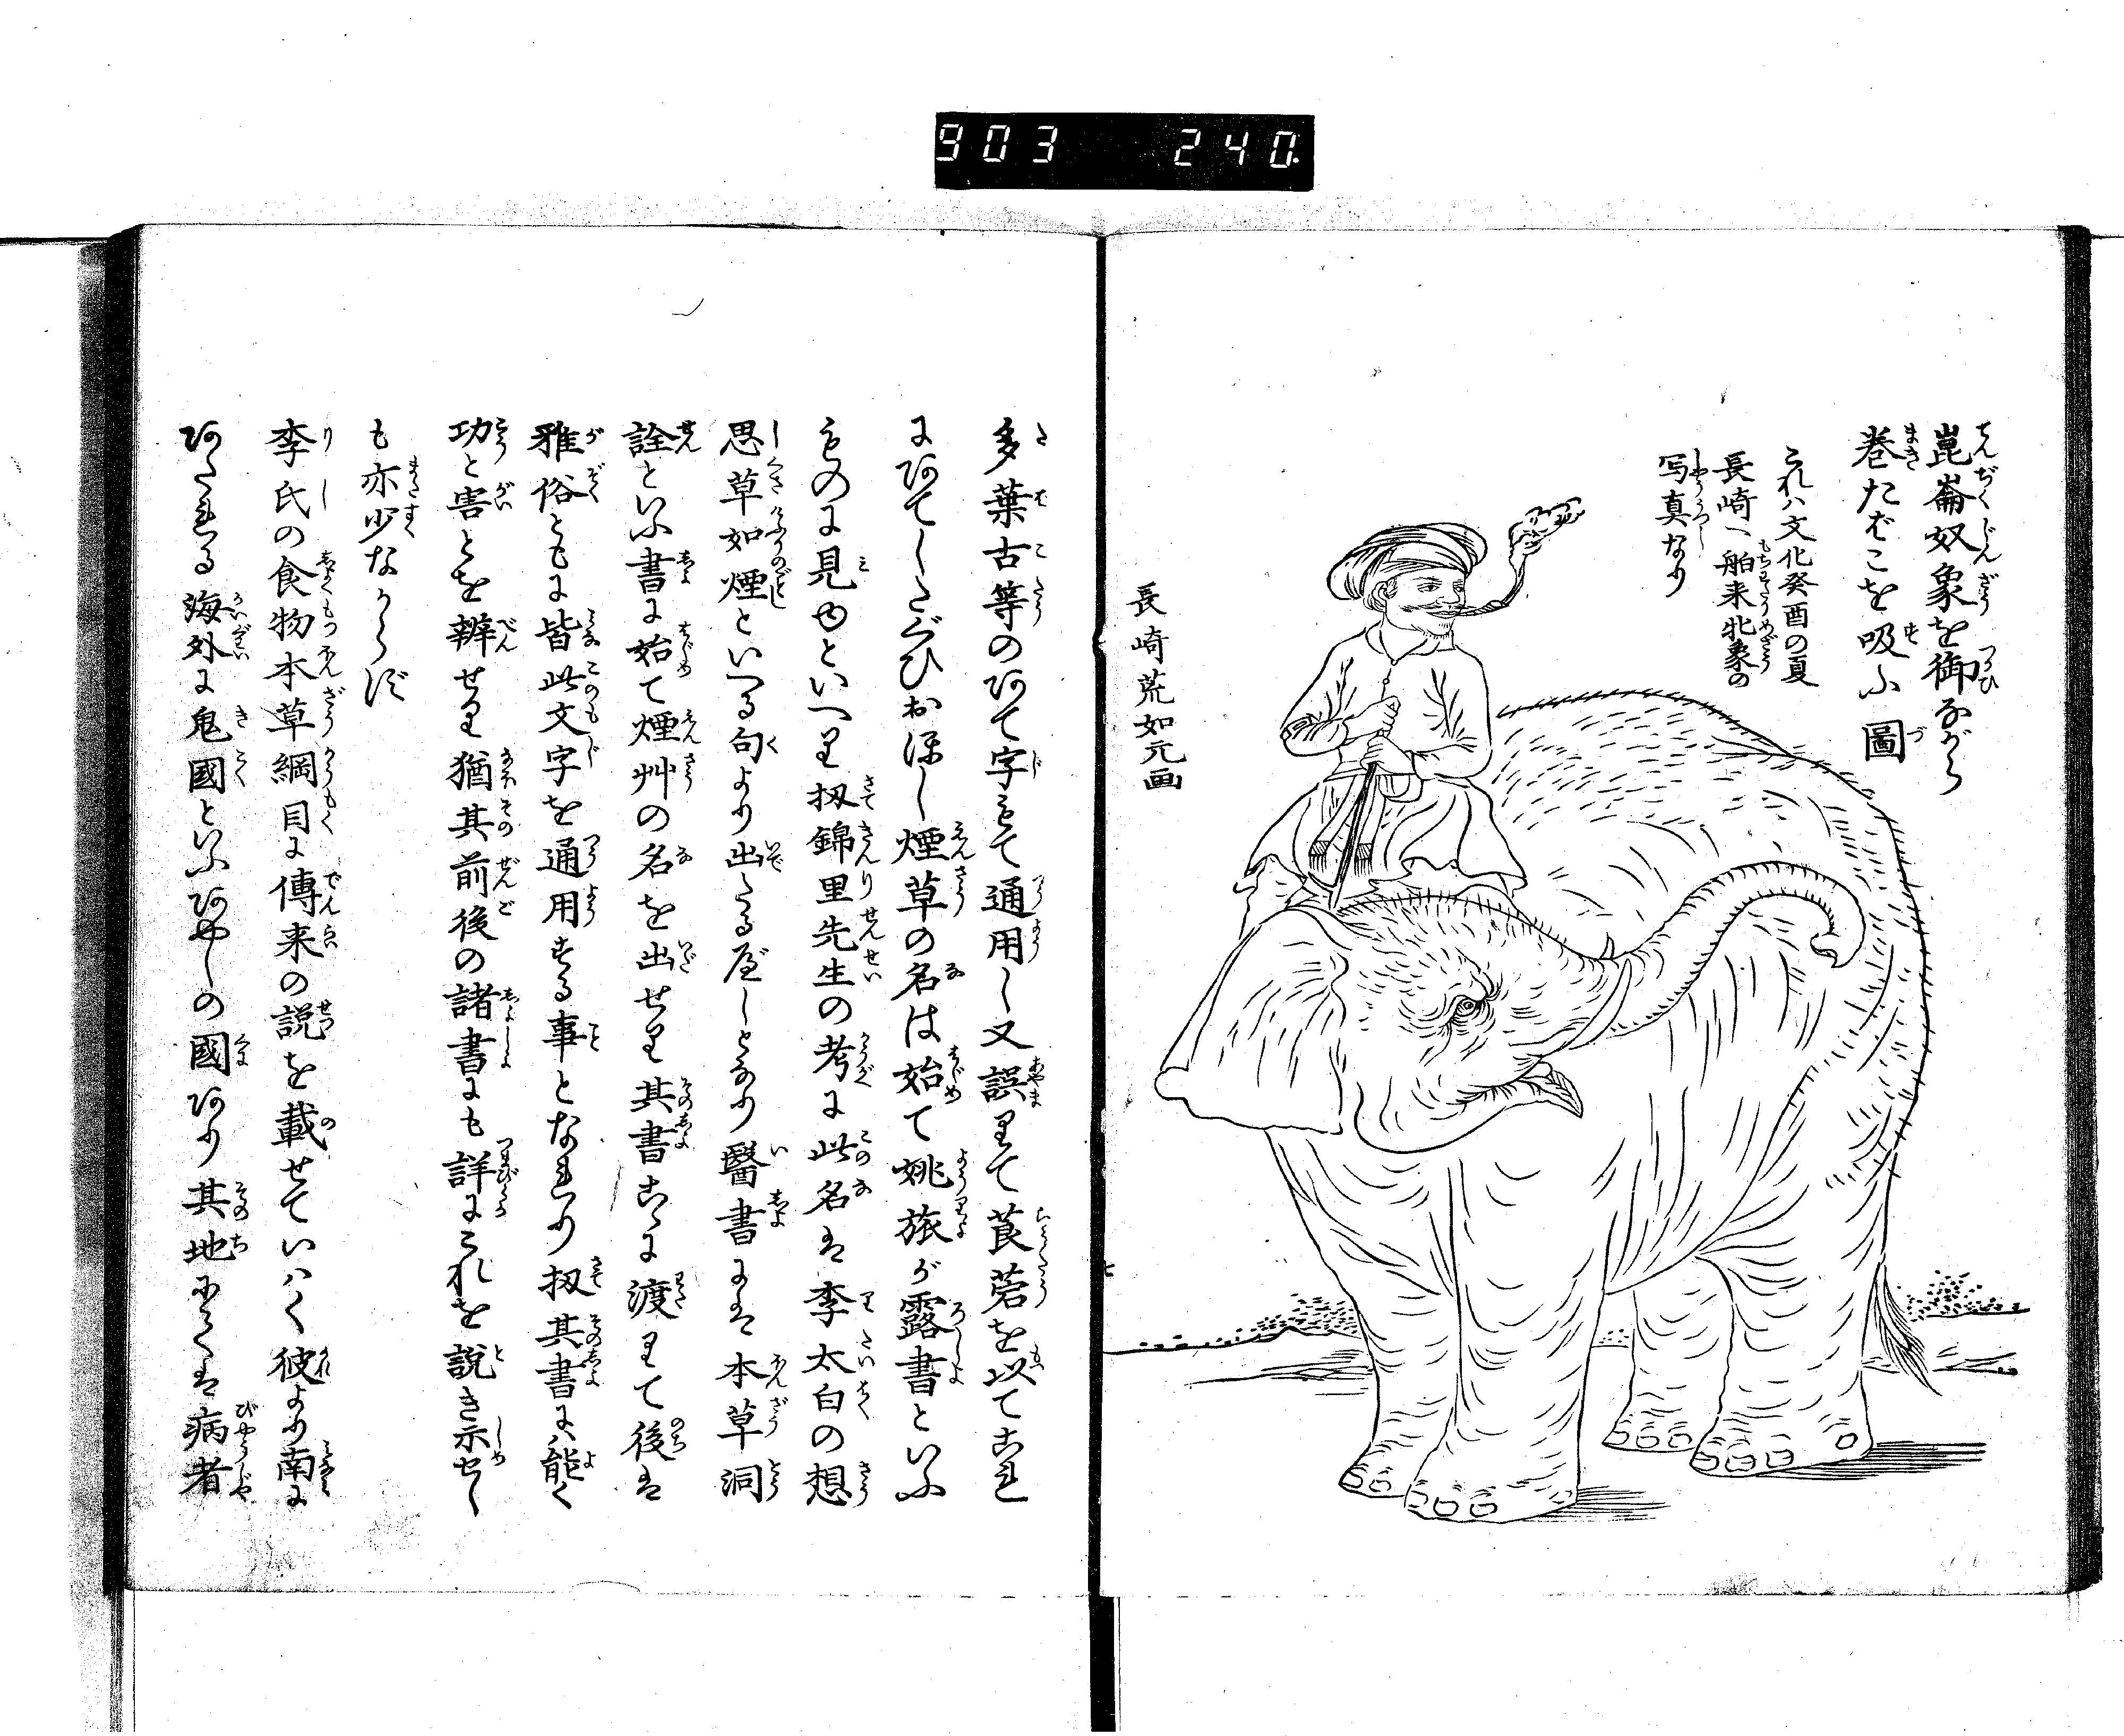 903 240
崑崙奴象を御ながら
巻たばこを吸ふ圖
これハ文化癸酉の夏
長崎へ舶来牝象の
写真なり
長崎荒如元画
多葉古等のあて字もて通用し又誤りて莨菪を以てこれ
にあてしたぐひおほし煙草の名は始て姚旅が露書といふ
ものに見ゆといへり扨錦里先生の考に此名は李太白の想
思草如煙といへる句より出たる歟しとなり醫書には本草洞
詮といふ書に始て煙艸の名を出せり其書こゝに渡りて後は
雅俗ともに皆此文字を通用する事となれり扨其書に能く
功と害とを辨せり猶其前後の諸書にも詳にこれを説き示せし
も亦少なからず
李氏の食物本草綱目に傳来の説を載せていはく彼より南に
あたれる海外に鬼國といふあやしの國あり其地にては病者